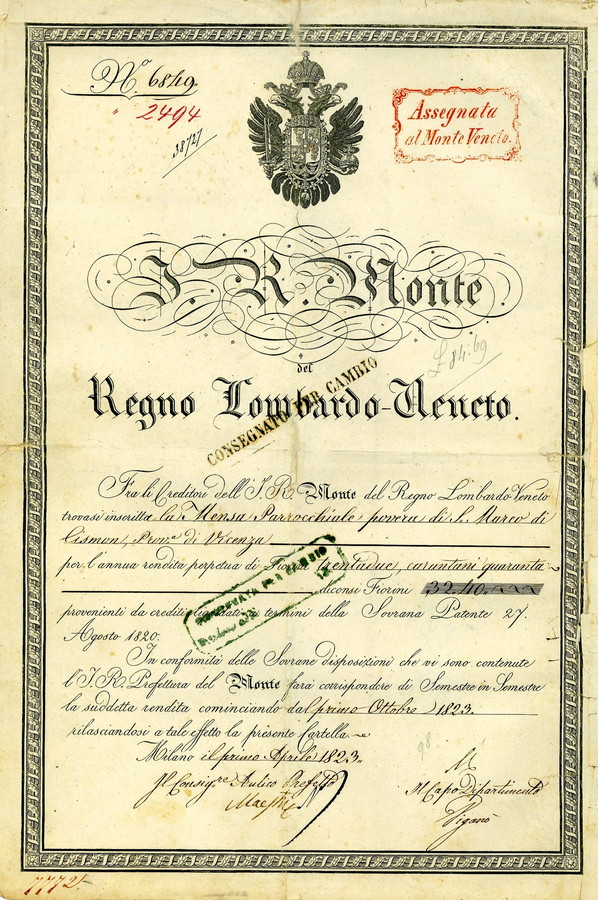 Nº 6849.
2494
38727
Assegnata
al Monte Veneto.
I. R. Monte
£ 84:69
del
Regno Lombardo-Veneto.
CONSEGNATO PER CAMBIO
Fra li Creditori dell'I. R. Monte del Regno Lombardo-Veneto
trovasi inscritta la Mensa Parrocchiale povera di S. Marco di
Cismon, Prov.ª di Vicenza
per l'annua rendita perpetua di Fiorini trentadue, carantani quaranta
diconsi Fiorini 32.40.
PER CAMBIO
provenienti da crediti liquidati a termini della Sovrana Patente 27.
Agosto 1820.
In conformità delle Sovrane disposizioni che vi sono contenute
l'I. R. Prefettura del Monte farà corrispondere di Semestre in Semestre
la suddetta rendita cominciando dal primo Ottobre 1823.
rilasciandosi a tale effetto la presente Cartella.
Milano il primo Aprile 1823.
98
Il Consigre Aulico Prefetto
Il Capo Dipartimento
Pigano
7772